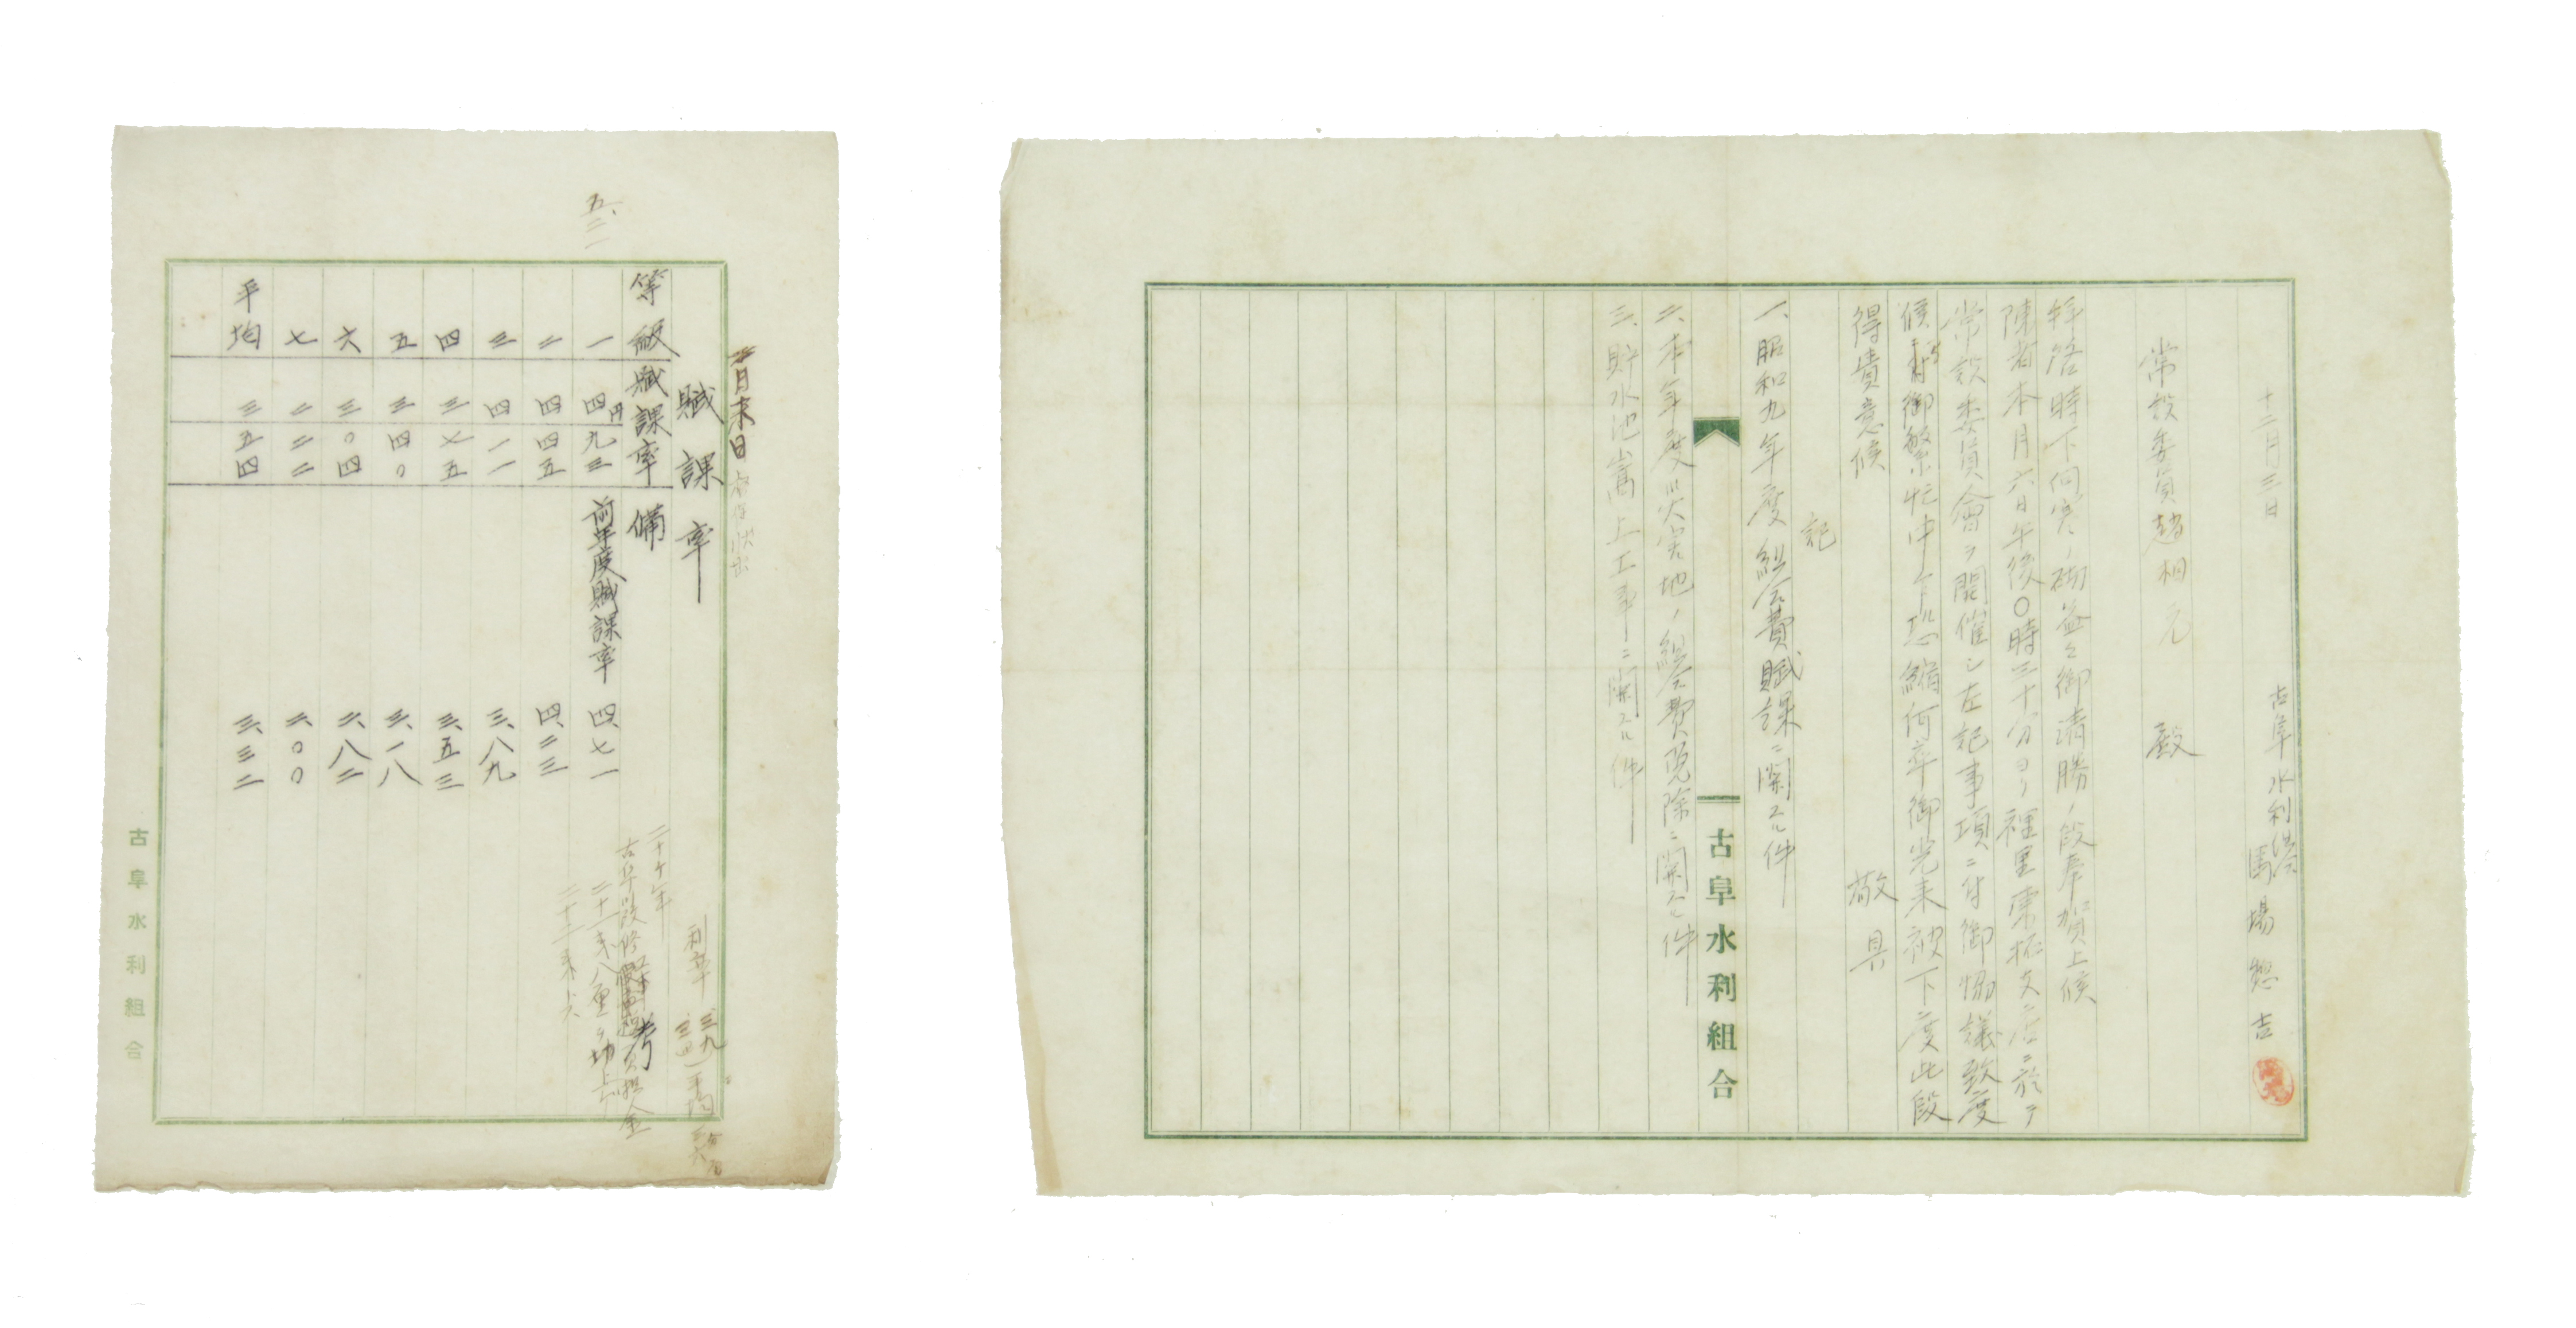 十二月三日
古阜水利組合
馬場惣吉
常設委員趙相元 殿
拝啓時下向寒ノ砌益々御清勝ノ段奉賀上候
陳者本月六日午後〇時三十分ヨリ
ニ於テ
常設委員會ヲ開催シ左記事項ニ付御協議致度
候ニ付御繁忙中乍恐縮何卒御光来被下度此段
得貴意候
敬具
記
一、昭和九年度組合費賦課ニ関スル件
二、本年度災害地ノ組合費免除ニ関スル件
三、貯水池嵩上工事ニ関スル件
古阜水利組合
月末日
賦課率
等級 賦課率 備考
一 四円九三 前年度賦課率 四、七一
二 四四五 四、二三
三 四一一 三、八九
四 三七五 三、五三
五 三四〇 三、一八
六 三〇四 二、八二
七 二二二 二、〇〇
平均 三五四 三、三二
五、三一
利率
平均
二十ケ年
古阜水利組合